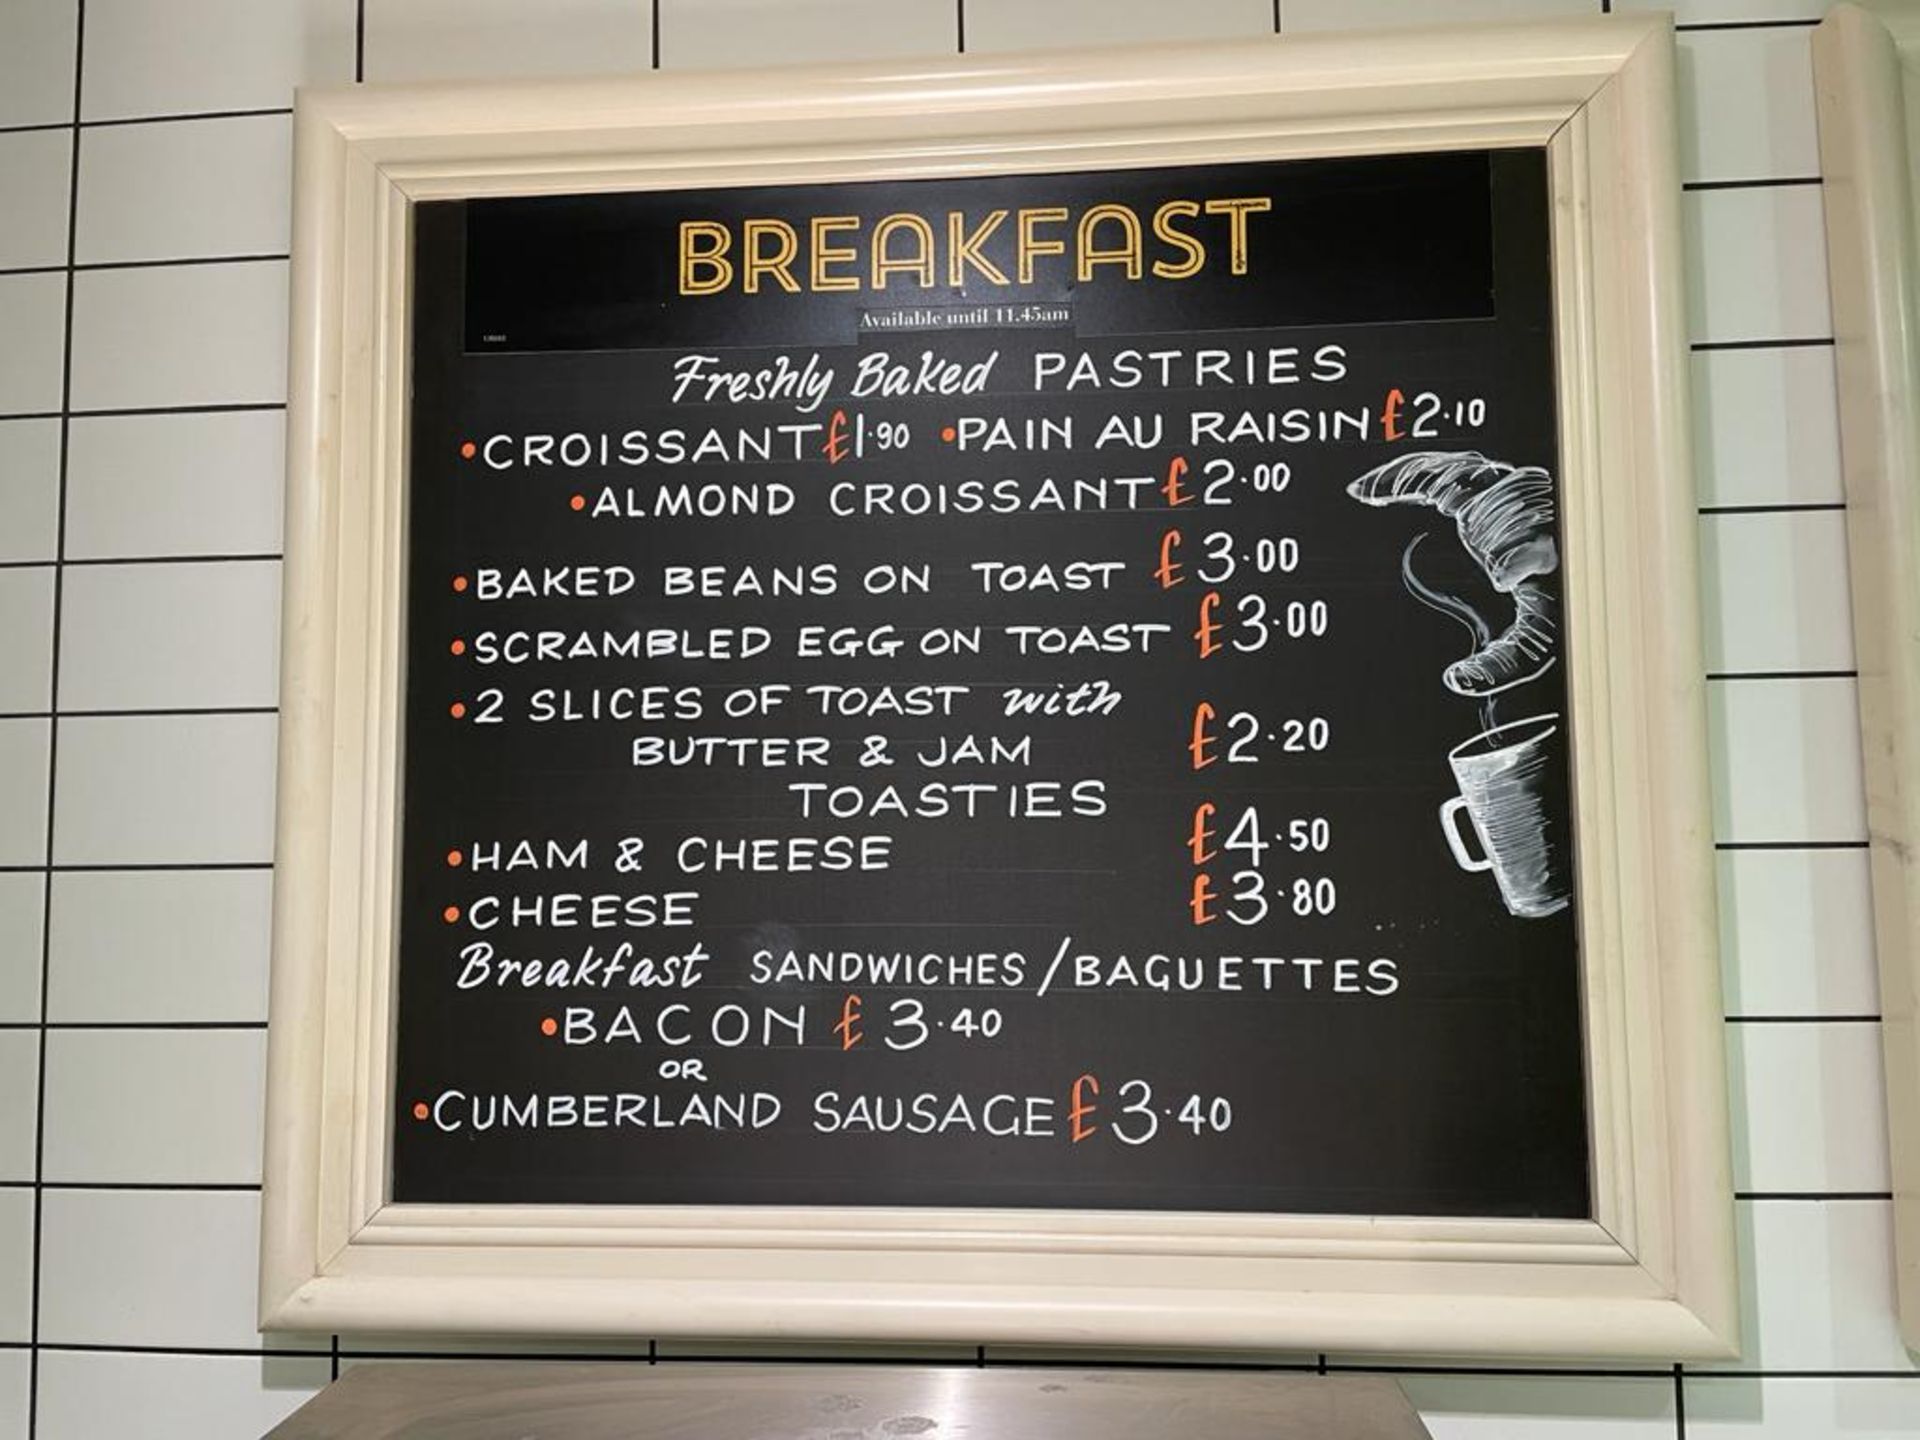 BREAKFAST
Available until 11.45am
Freshly Baked PASTRIES
•CROISSANT £1.90 •PAIN AU RAISIN £2.10
•ALMOND CROISSANT £2.00
•BAKED BEANS ON TOAST £3.00
•SCRAMBLED EGG ON TOAST £3.00
•2 SLICES OF TOAST with
BUTTER & JAM £2.20
TOASTIES
•HAM & CHEESE £4.50
•CHEESE £3.80
Breakfast SANDWICHES/BAGUETTES
•BACON £3.40
OR
•CUMBERLAND SAUSAGE £3.40